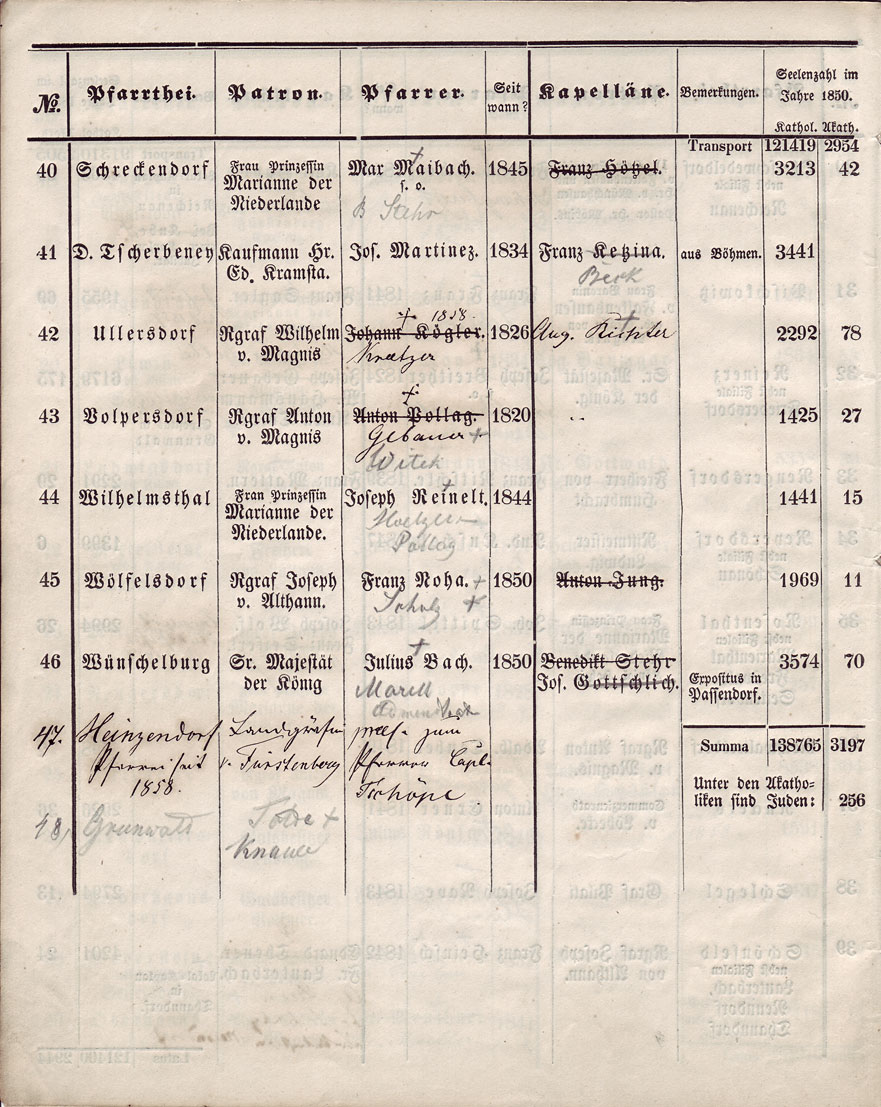 No. Pfarrthei. Patron. Pfarrer. Seit wann? Kapelläne. Bemerkungen. Seelenzahl im Jahre 1850.
Kathol. Akath.
Transport 121419 2954
40 Schreckendorf Frau Prinzessin Mar Maibach. 1845 Franz Hötzel. 3213 42
Marianne der s. o.
Niederlande B Stehr
41 D. Tscherbeney Kaufmann Hr. Jos. Martinez. 1834 Franz Ketzina. aus Böhmen. 3441
Ed. Kramsta. Beck
1858.
42 Ullersdorf Rgraf Wilhelm Johann Kögler. 1826 Aug. Richter 2292 78
v. Magnis Kraetzer
43 Volpersdorf Rgraf Anton Anton Pollag. 1820 .. 1425 27
v. Magnis Gebauer +
Witek
44 Wilhelmsthal Frau Prinzessin Joseph Reinelt. 1844 1441 15
Marianne der
Niederlande. Pollag
45 Wölfelsdorf Rgraf Joseph Franz Noha. + 1850 Anton Jung. 1969 11
v. Althann. Scholz +
46 Wünschelburg Sr. Majestät Julius Bach. 1850 Benedikt Stehr 3574 70
der König Jos. Gottschlich. Expositus in
Passendorf.
47. Heinzendorf Landgräfin praes. zum Summa 138765 3197
Pfarrei seit v. Fürstenberg Pfarrer Capl.
1858. Tschöpe. Unter den Akatho-
liken sind Juden: 256
48, Grunwald
Knauer